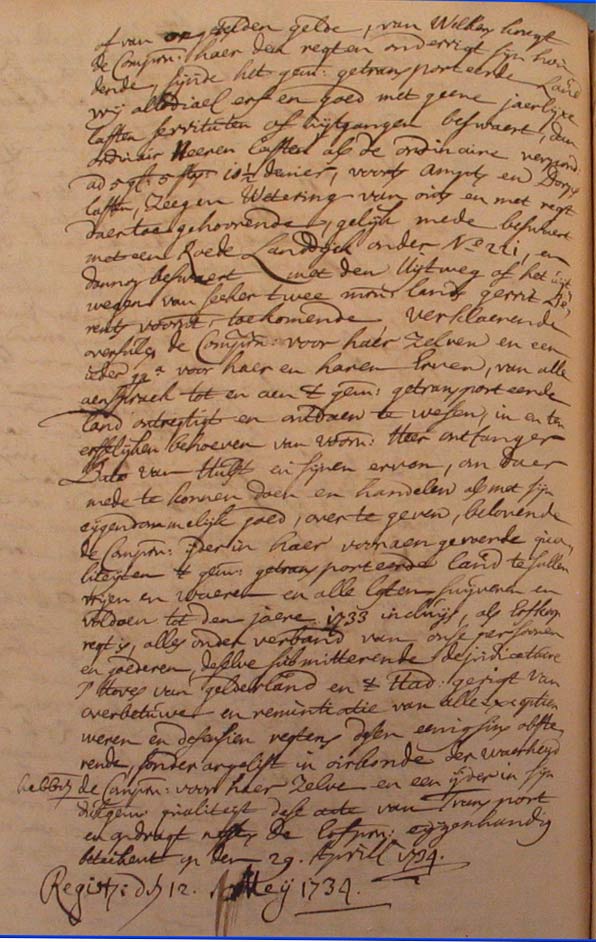 of van ongetelden gelde, van Welken koragt
de Compn: haer den regten onderrigt sijn hou
dende, sijnde het gem: getransporteerde Land
vrij allodiael erf en goed met geene jaerlixe
lasten servituten of uijtgangen beswaert, dan
ordinair Heeren lasten als de ordinaire verpond:
ad 5 gl: 5 st: 10½ denier, voorts Ampts en Dorps
lasten, Zeegen Wetering van outs en met regt
daertoe gehoorende, gelijk mede beswaert
met een Roede Landdijk onder No 221, en
daernoy beswaert met den Uijtweg of het uijt
wegen van seker twee mor: lands gerrit Do,
rents voorst, toekomende verklaerende
oversulx de Compn: voor haer Zelven en een
ider qa voor haer en haren Erven, van alle
aenspraek tot en aen 't gem: getransporteerde
land ontregtigt en ontdaen te wesen, in en ten
erffelijken behoeven van voorn: Heer ontfanger
van Hulst en sijnen erven, om daer
mede te konnen doen en handelen als met sijn
eijgendommelijk goed, over te geven, belovende
de Compn: ijder in haer voornaengeroerde qua,
liteijten 't gem: getransporteerde land te sullen
vrijen en waeren en alle lasten suijveren en
voldoen tot den jaere 1733 incluijs, als Erfkoop
regt is, alles onder verband van onse persoonen
en goederen, deselve submitterende de judicature
's Hoves van Gelderland en 't Stad: gerigt van
overbetuwe en renuntiatie van alle exceptien
weren en defensien regtens desen eenigsins obste,
rende, sonder argelist in oirkonde der waerheijd
hebben de Compn: voor haer Zelve en een ijder in sijn
dito gem: qualiteijt dese acte van Transport
en opdragt nefens de Erfpn: eijgenhandig
betekent op den 29. Aprill 1734.
Regist: d: 12. Meij 1734.